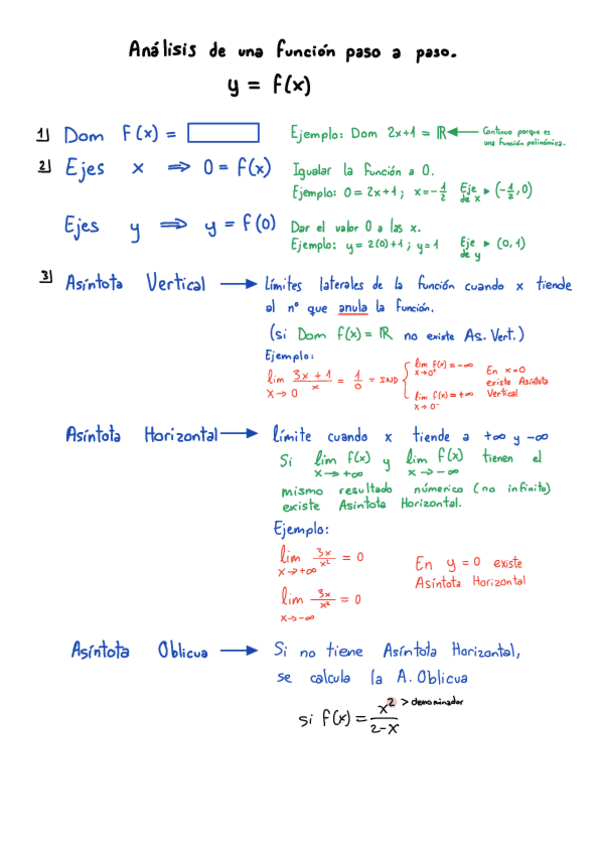 Análisis de una función paso a paso.
y = f(x)
1| Dom f(x) =
Ejemplo: Dom 2x+1 = ℝ ← Continua porque es
una función polinómica.
2| Ejes x ⇒ 0 = f(x)
Igualar la función a 0.
Ejemplo: 0 = 2x+1 ; x = -1/2 Eje de x ▸ (-1/2, 0)
Ejes y ⇒ y = f(0)
Dar el valor 0 a las x.
Ejemplo: y = 2(0)+1 ; y = 1 Eje de y ▸ (0, 1)
3| Asíntota Vertical → Límites laterales de la función cuando x tiende
al nº que anula la función.
(si Dom f(x) = ℝ no existe As. Vert.)
Ejemplo:
lim x→0 3x + 1 / x = 1/0 = IND { lim x→0⁺ f(x) = -∞
lim x→0⁻ f(x) = +∞
En x=0
existe Asíntota
Vertical
Asíntota Horizontal → límite cuando x tiende a +∞ y -∞
Si lim x→+∞ f(x) y lim x→-∞ f(x) tienen el
mismo resultado númerico (no infinito)
existe Asíntota Horizontal.
Ejemplo:
lim x→+∞ 3x/x² = 0
lim x→-∞ 3x/x² = 0
En y = 0 existe
Asíntota Horizontal
Asíntota Oblicua → Si no tiene Asíntota Horizontal,
se calcula la A. Oblicua
si f(x) = x² / 2-x > denominador